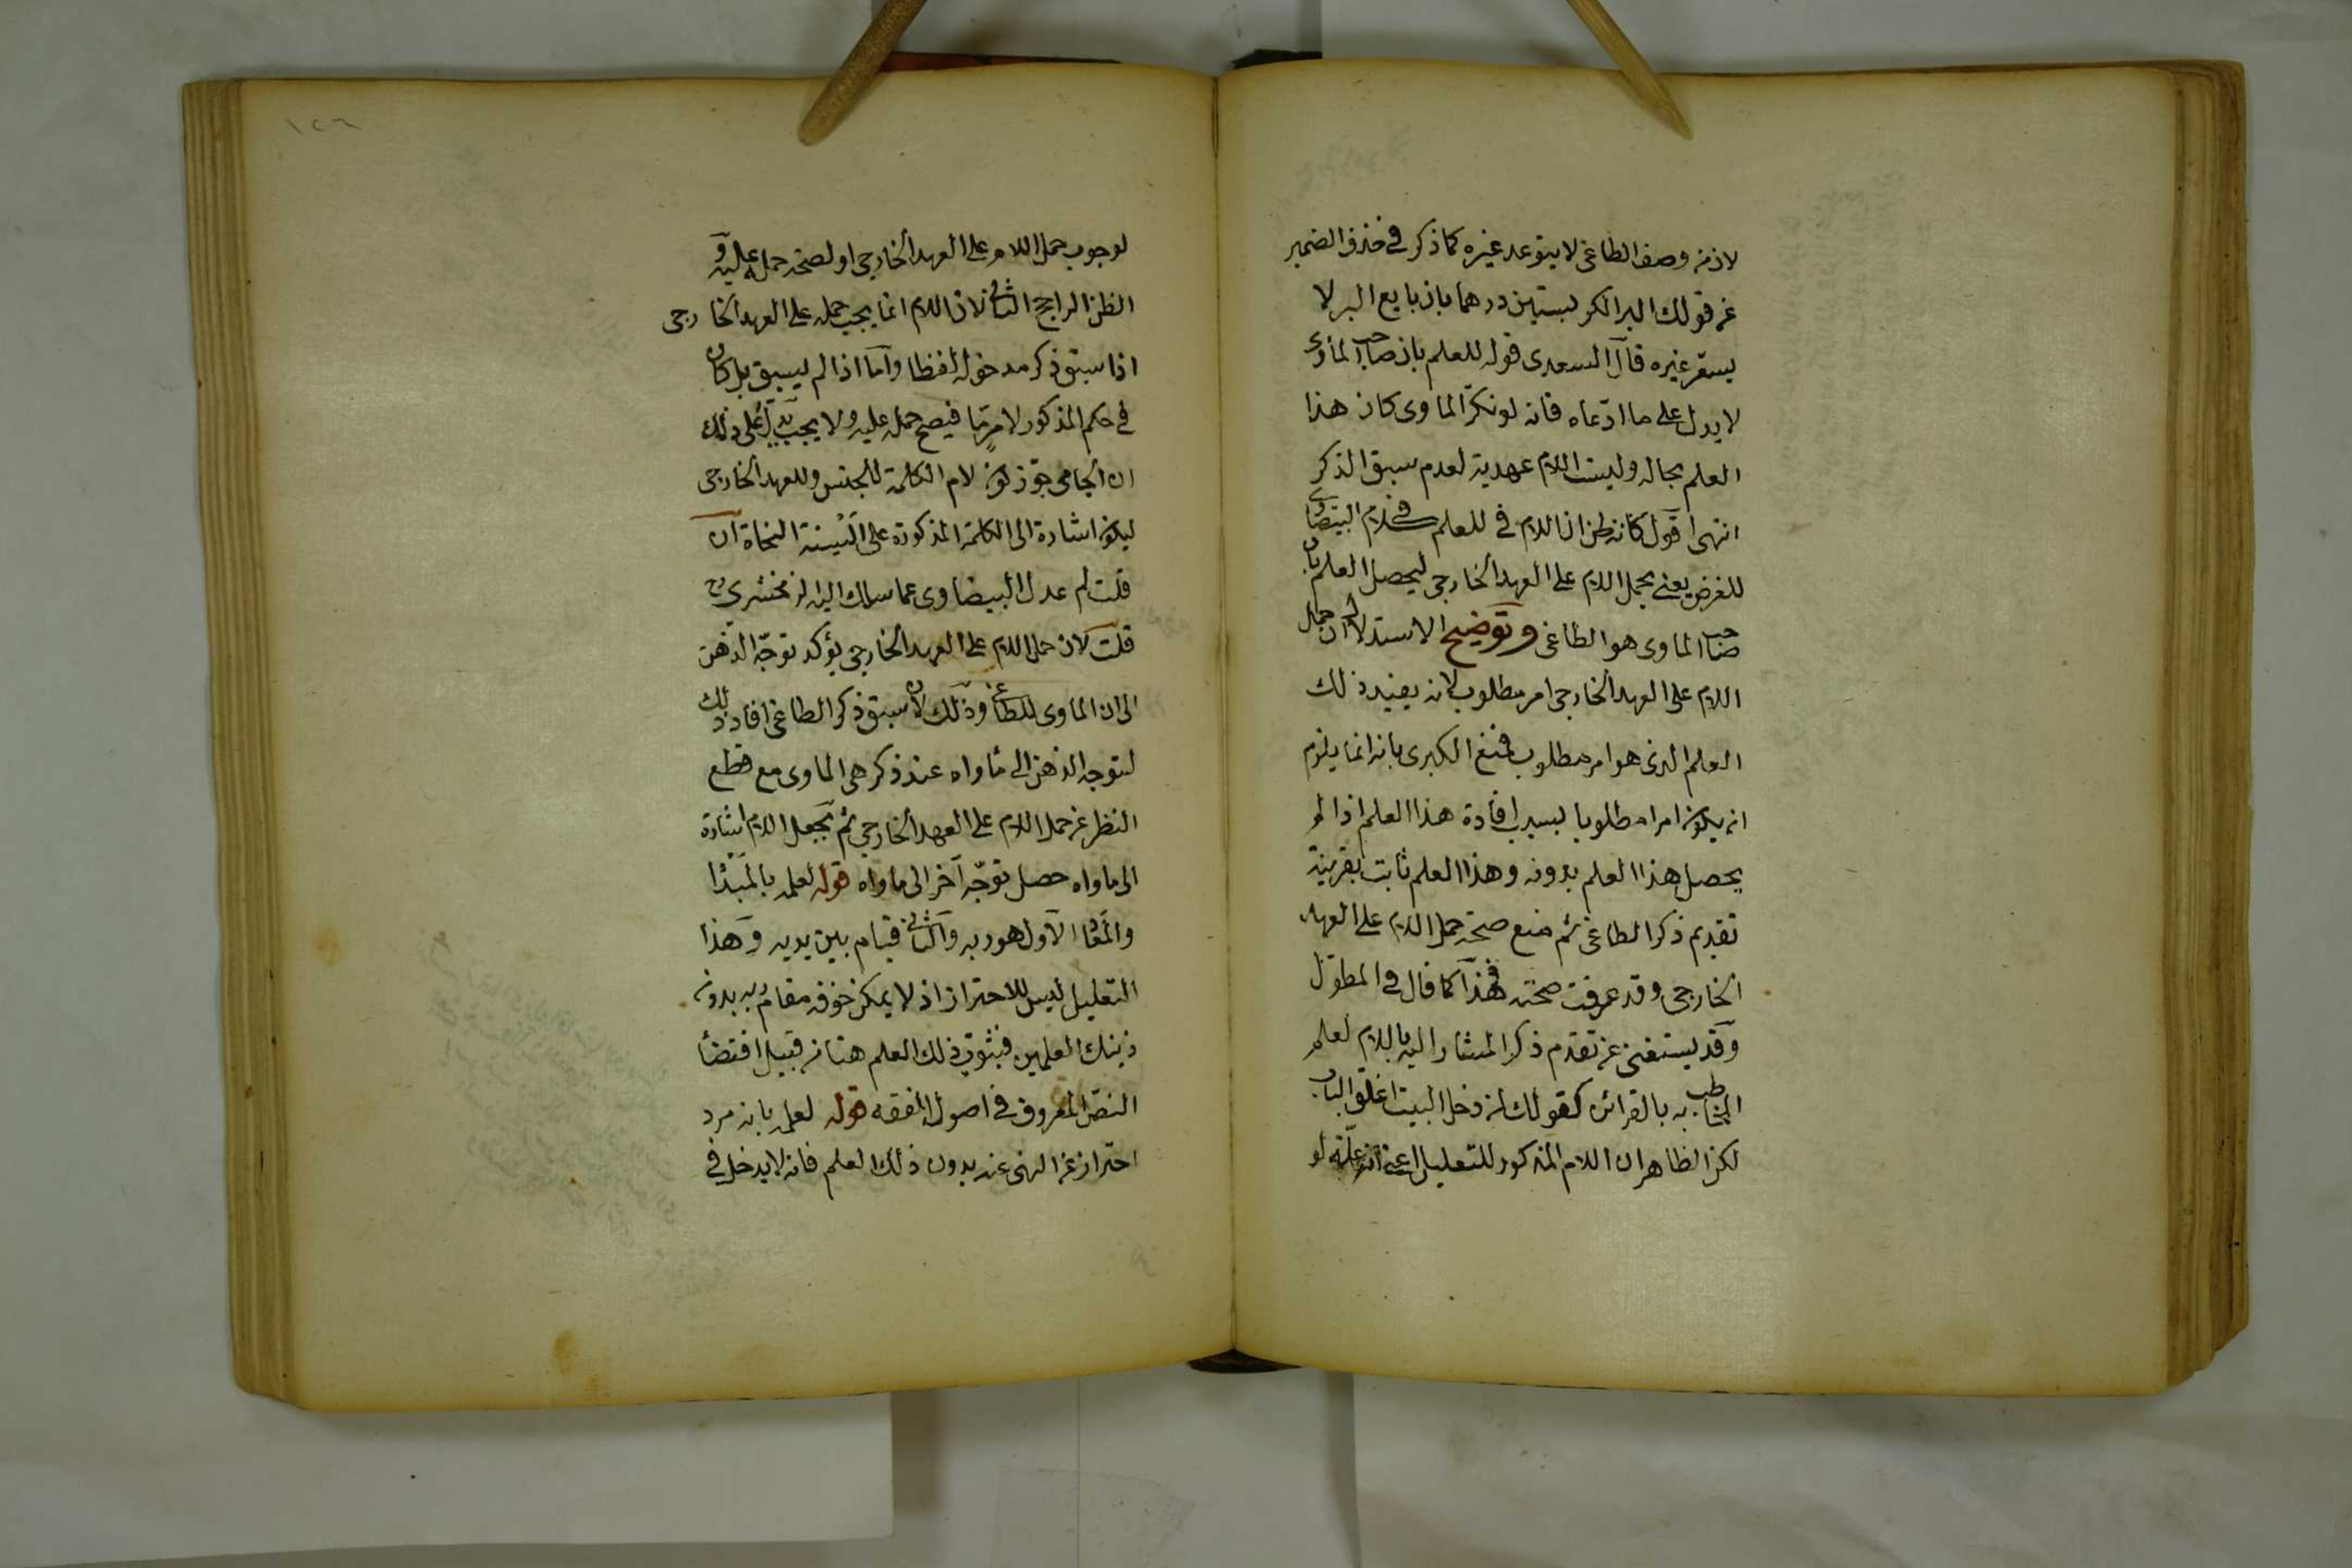 لان من وصف الطاغى لا يتوعد غيره كما ذكر في حذف الضمير
عن قولك البر الكر بستين درهما بان بايع البر لا
يسعر غيره قال السعدى قوله للعلم بان صاحب المأوى
لا يدل على ما ادّعاه فانه لو نكرّ الماوى كان هذا
العلم بحاله وليست اللام عهدية لعدم سبق الذكر
انتهى اقول كانه ظن ان اللام في للعلم في كلام البيضاوى
للغرض يعنى يحمل اللام على العهد الخارجى ليحصل العلم بان
صاحب الماوى هو الطاغى وتوضيح الاستدلال ان حمل
اللام على العهد الخارجى امر مطلوب لانه يفيد ذلك
العلم الذى هو امر مطلوب فمنع الكبرى بانه انما يلزم
ان يكون امرا مطلوبا بسبب افادة هذا العلم اذا لم
يحصل هذا العلم بدونه وهذا العلم ثابت بقرينة
تقديم ذكر الطاغى ثم منع صحة حمل اللام على العهد
الخارجى وقد عرفت صحته فى هذا كما قال في المطوّل
وقد يستغنى عن تقدم ذكر المشار اليه باللام لعلم
المخاطب به بالقرائن كقولك لمن دخل البيت اغلق الباب
لكن الظاهر ان اللام المذكور للتعليل اعنى انه علّة لو
١٢٦
لوجوب حمل اللام على العهد الخارجى او لصحة حمله عليه و
الظن الراجح الثانى لان اللام انما يجب حمله على العهد الخارجى
اذا سبق ذكر مدخوله لفظا وآما اذا لم يسبق بل كان
في حكم المذكور لامر ما فيصح حمله عليه ولا يجب يدلّ على ذلك
ان الجامى جوّز كون لام الكلمة للجنس وللعهد الخارجى
ليكون اشارة الى الكلمة المذكورة على السنة النحاة آن
قلت لم عدل البيضاوى عما سلك اليه الزمخشرى
قلت لان حمل اللام على العهد الخارجى يؤكد توجّه الذهن
الى ان الماوى للطاغى وذلك لان سبق ذكر الطاغى افاد ذلك
لتوجه الذهن الى مأواه عند ذكر هى الماوى مع قطع
النظر عن حمل اللام على العهد الخارجى ثم بجعل اللام اشارة
الى ماواه حصل توجّه آخر الى ماواه قوله لعلمه بالمبدأ
والمعاد الآول هو ربه والثانى قيام بين يديه وهذا
التعليل ليس للاحتراز اذ لا يمكن خوف مقام ربه بدون
ذينك العلمين فثبوت ذلك العلم هنا من قبيل اقتضأ
النص المعروف في اصول الفقه قوله لعلمه بانه مرد
احتراز عن النهى عنه بدون ذلك العلم فانه لا يدخل في